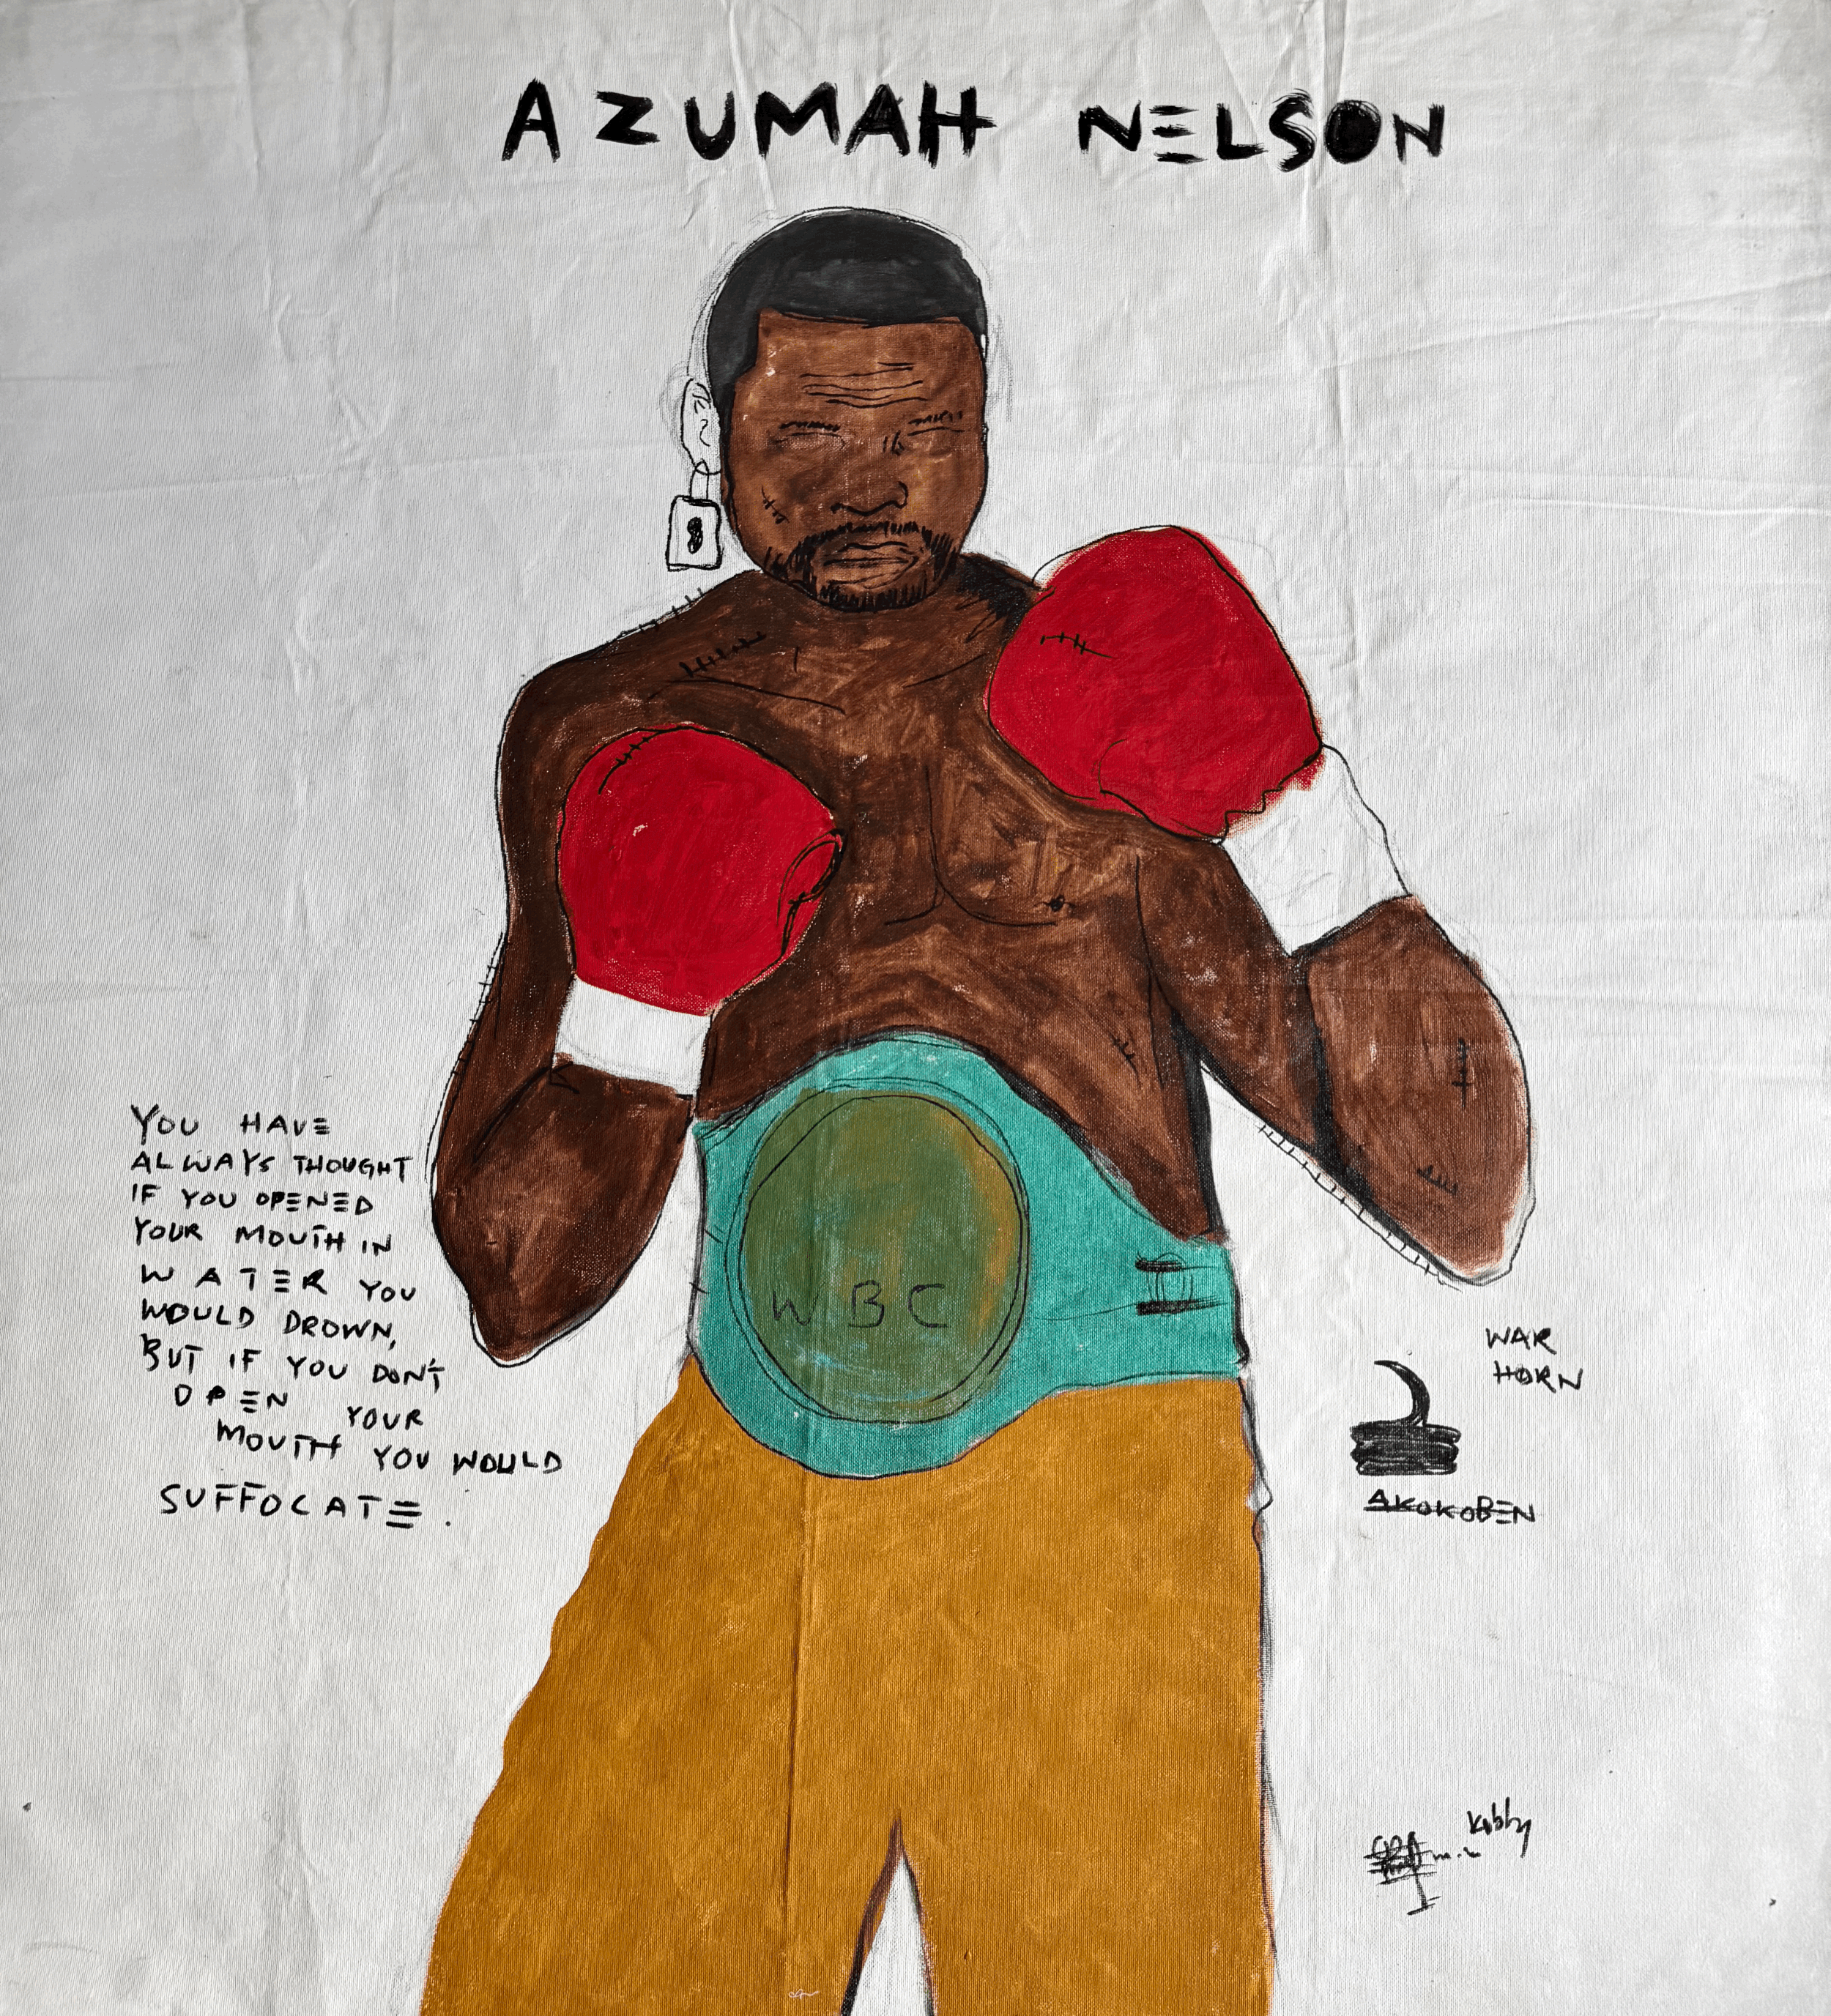 AZUMAH NELSON
WBC
YOU HAVE
ALWAYS THOUGHT
IF YOU OPENED
YOUR MOUTH IN
WATER YOU
WOULD DROWN,
BUT IF YOU DON'T
OPEN YOUR
MOUTH YOU WOULD
SUFFOCATE.
WAR
HORN
AKOKOBEN
Kobby